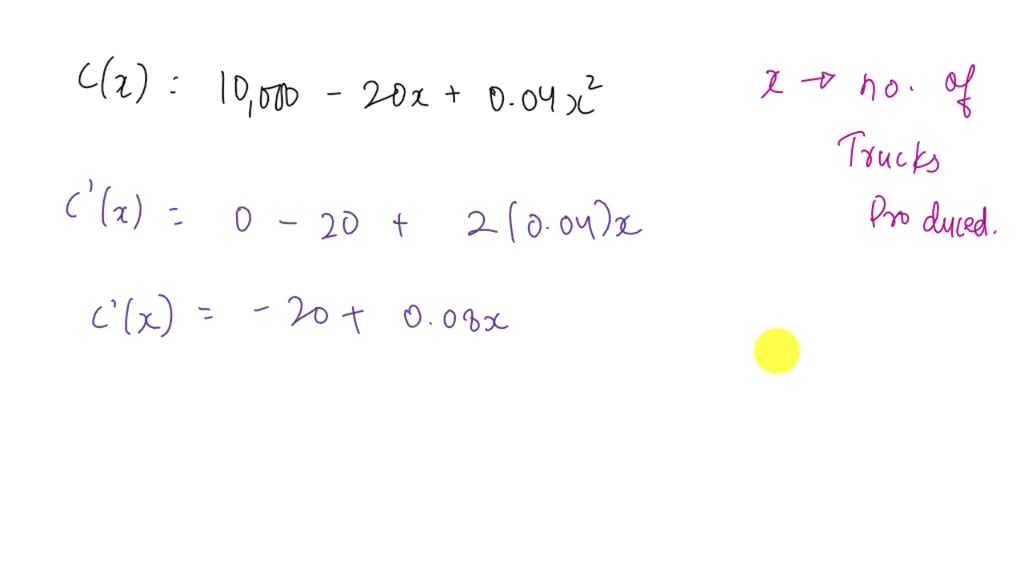 C(x) = 10,000 - 20x + 0.04x²
x → no. of
Trucks
Produced.
C'(x) = 0 - 20 + 2(0.04)x
C'(x) = -20 + 0.08x